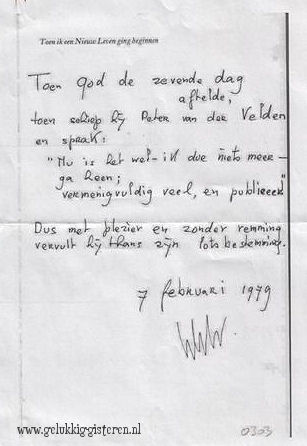 Toen ik een Nieuw Leven ging beginnen
Toen god de zevende dag
aftelde,
toen schiep hij Peter van der Velden
en sprak:
"Nu is het wel - ik doe niets meer -
ga heen;
vermenigvuldig veel, en publiceer"
Dus met plezier en zonder remming
vervult hij thans zijn lotsbestemming.
7 februari 1979
www.gelukkiggisteren.nl
0303